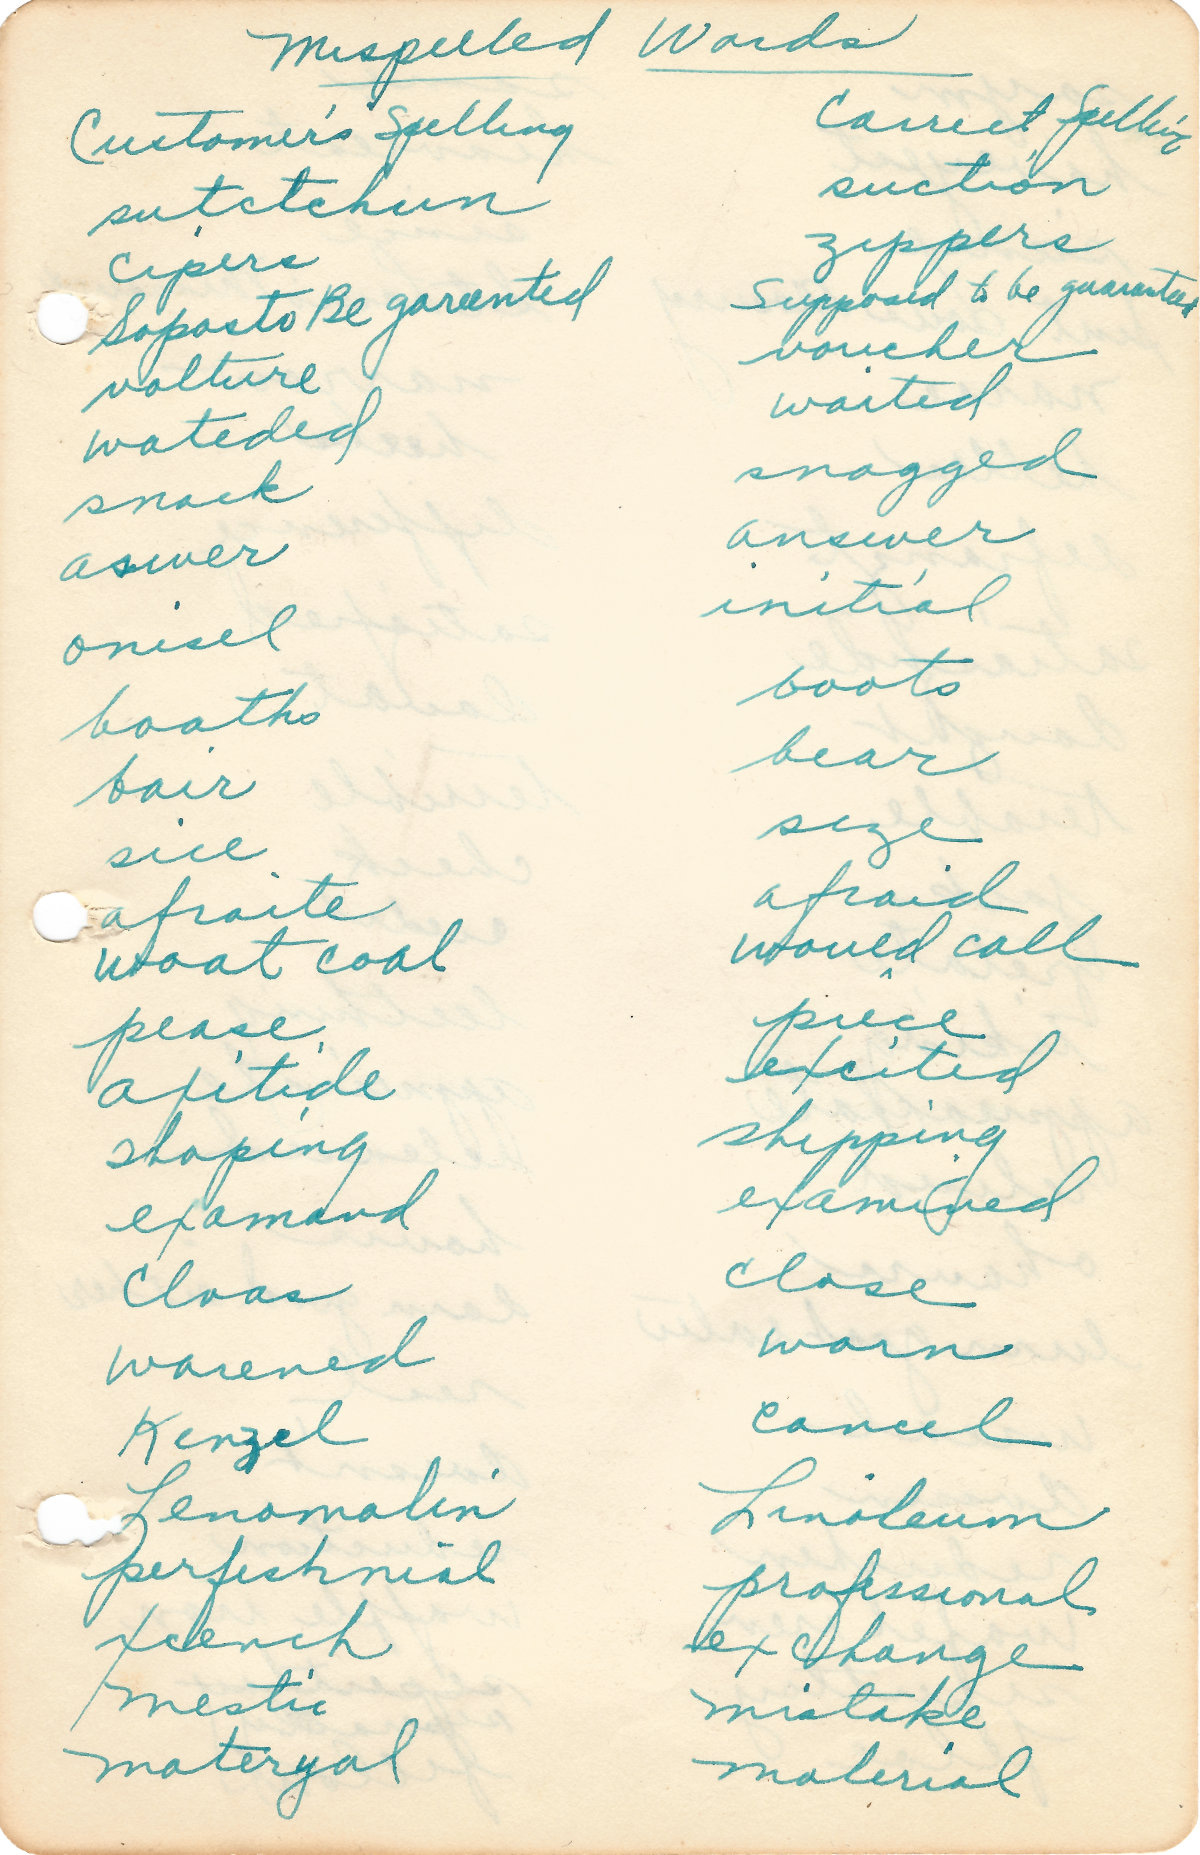 Mispelled Words
Customer's Spelling Correct Spelling
sutctchun suction
cipers zippers
Soposto Be goreented Supposed to be guaranteed
volture voucher
wateded waited
snack snagged
aswer answer
onisel initial
booths boots
bair bear
sice size
afraite afraid
woat coal would call
pease piece
axitide excited
shoping shipping
examand examined
Cloas close
warened warn
Kenzel cancel
Lenomalin Linoleum
perfeshnial professional
xcench exchange
mestic mistake
materyal material